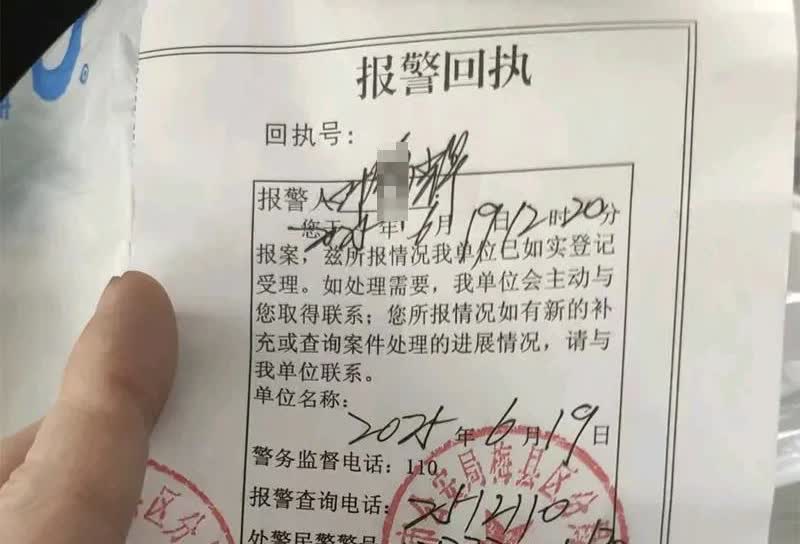 报警回执
回执号：
报警人
您于2025年6月19日12时20分
报案，兹所报情况我单位已如实登记
受理。如处理需要，我单位会主动与
您取得联系；您所报情况如有新的补
充或查询案件处理的进展情况，请与
我单位联系。
单位名称：
2025年6月19日
警务监督电话：110
报警查询电话：2512110
处警民警警号
安局梅县区分
区分